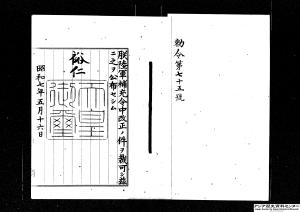 勅令第七十五號
朕陸軍補充令中改正ノ件ヲ裁可シ茲
ニ之ヲ公布セシム
裕仁
天皇御璽
昭和七年五月十六日
アジア歴史資料センター